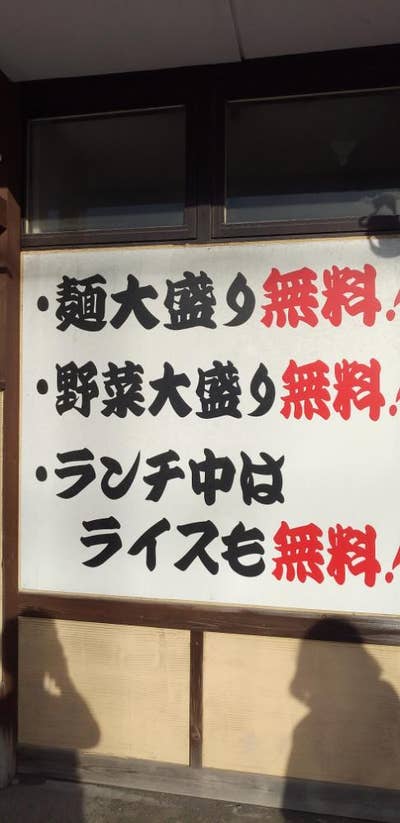 ・麺大盛り無料!
・野菜大盛り無料!
・ランチ中は
ライスも無料!